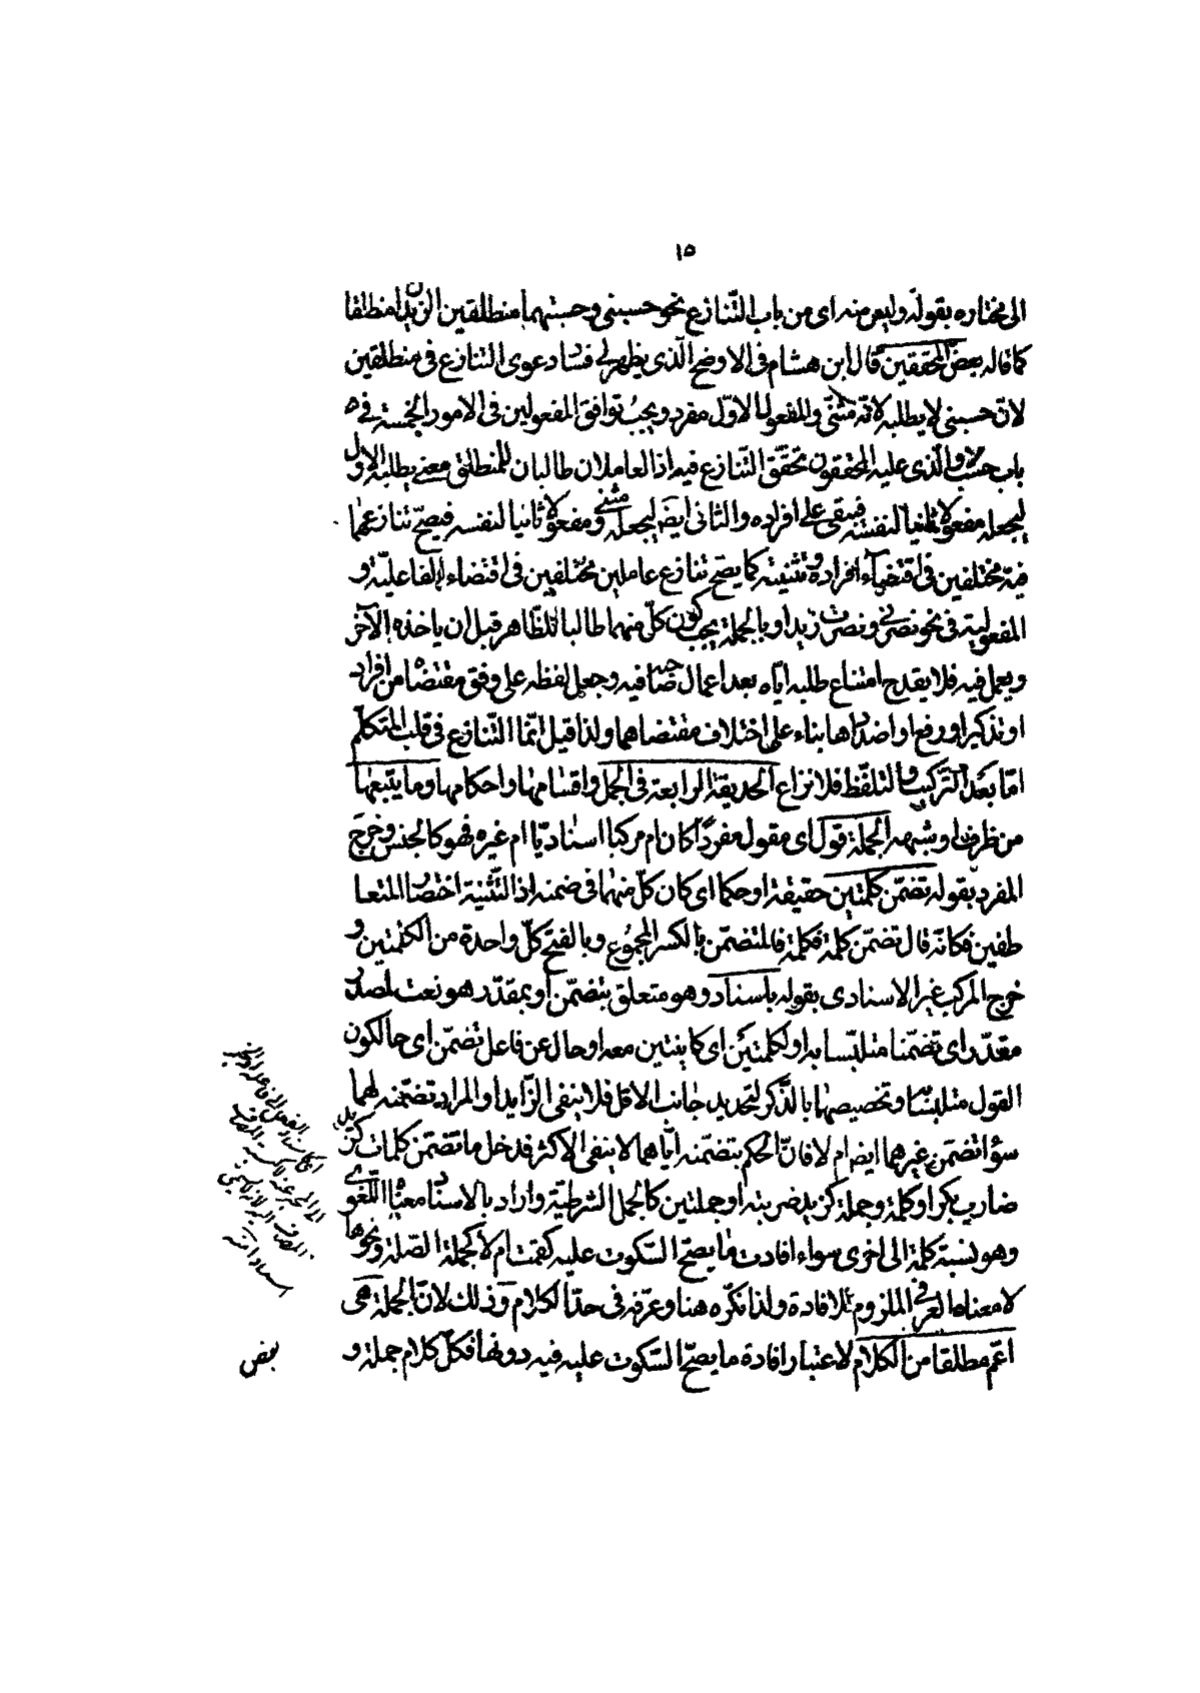 ١٥
الى مختاره بقوله وليس منه اى من باب التّنازع نحو حسبنى وحسبتهما منطلقين الزيدان منطلقا
كما قاله بعض المحققين قال ابن هشام فى الاوضح الّذى يظهر لى فساد دعوى التنازع فى منطلقين
لانّ حسبنى لا يطلبه لانّه مثنّى والمفعول الاوّل مفرد ويجب توافق المفعولين فى الامور الخمسة فى
باب حسب والّذى عليه المحققون تحقّق التّنازع فيه اذ العاملان طالبان للمنطلق معنى يطلبه الاول
ليجعله مفعولا ثانيا لنفسه فيبقى على افراده والثانى ايضا ليجعله مثنى ومفعولا ثانيا لنفسه فيصحّ تنازعهما
فيه مختلفين فى اقتضاء افراده وتثنيته كما يصحّ تنازع عاملين مختلفين فى اقتضاء الفاعليّة و
المفعولية فى نحو نصرنى ونصرت زيدا وبالجملة يجب كون كلّ منهما طالبا للظّاهر قبل ان ياخذه الآخر
ويعمل فيه فلا يقدح امتناع طلبه ايّاه بعد اعمال صاحبه فيه وجعل لفظه على وفق مقتضاه من افراد
او تذكير او رفع او اضدادها بناء على اختلاف مقتضاهما ولذا قيل انّما التّنازع فى قلب المتكلّم
امّا بعد التّركيب والتلفّظ فلا نزاع الحديقة الرابعة فى الجمل واقسامها واحكامها وما يتبعها
من ظرف او شبهه الجملة قول اى مقول مفردًا كان ام مركبا اسناديّا ام غيره فهو كالجنس وخرج
المفرد بقوله تضمّن كلمتين حقيقة او حكما اى كان كلّ منهما فى ضمنه اذ التّثنية اختصار المتعا
طفين فكانّه قال تضمّن كلمة فكلمة فالمتضمّن بالكسر المجموع وبالفتح كلّ واحدة من الكلمتين و
خرج المركب غير الاسنادى بقوله باسناد وهو متعلق بتضمّن او بمقدّر هو نعت لمصدر
مقدّر اى تضمّنا متلبّسا به او لكلمتين اى كاينتين معه او حال عن فاعل تضمّن اى حالكون
القول متلبّسًا وتخصيصهما بالذّكر لتحديد جانب الاقل فلا ينفى الزّايد والمراد تضمّنه لهما
سواء تضمّن غيرهما ايضا ام لا فانّ الحكم بتضمّنه ايّاهما لا ينفى الاكثر فدخل ما تضمّن كلمات كزيد
ضارب بكرا وكلمة وجملة كزيد ضربته او جملتين كالجمل الشرطيّة واراد بالاسناد معناه اللّغوى
وهو نسبة كلمة الى اخرى سواء افادت ما يصحّ السّكوت عليه كقمت ام لا كجملة الصّلة ونحوها
لا معناه العرفى الملزوم للافادة ولذا نكّره هنا وعرّفه فى حدّ الكلام وذلك لانّ الجملة هى
اعمّ مطلقا من الكلام لاعتبار افادة ما يصحّ السّكوت عليه فيه دونها فكلّ كلام جملة و
بعض